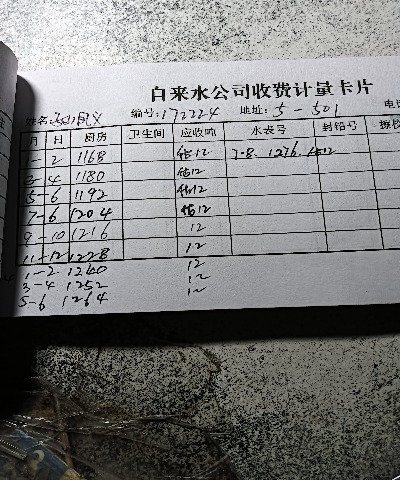 自来水公司收费计量卡片
姓名: 编号:172224 地址:5-501 电话
月 日 厨房 卫生间 应收吨 水表号 封铅号
1-2 1168 12 7-8. 1276. 12
3-4 1180 12
5-6 1192 12
7-6 1204 12
9-10 1216 12
11-12 1228 12
1-2 1240 12
3-4 1252 12
5-6 1264 12